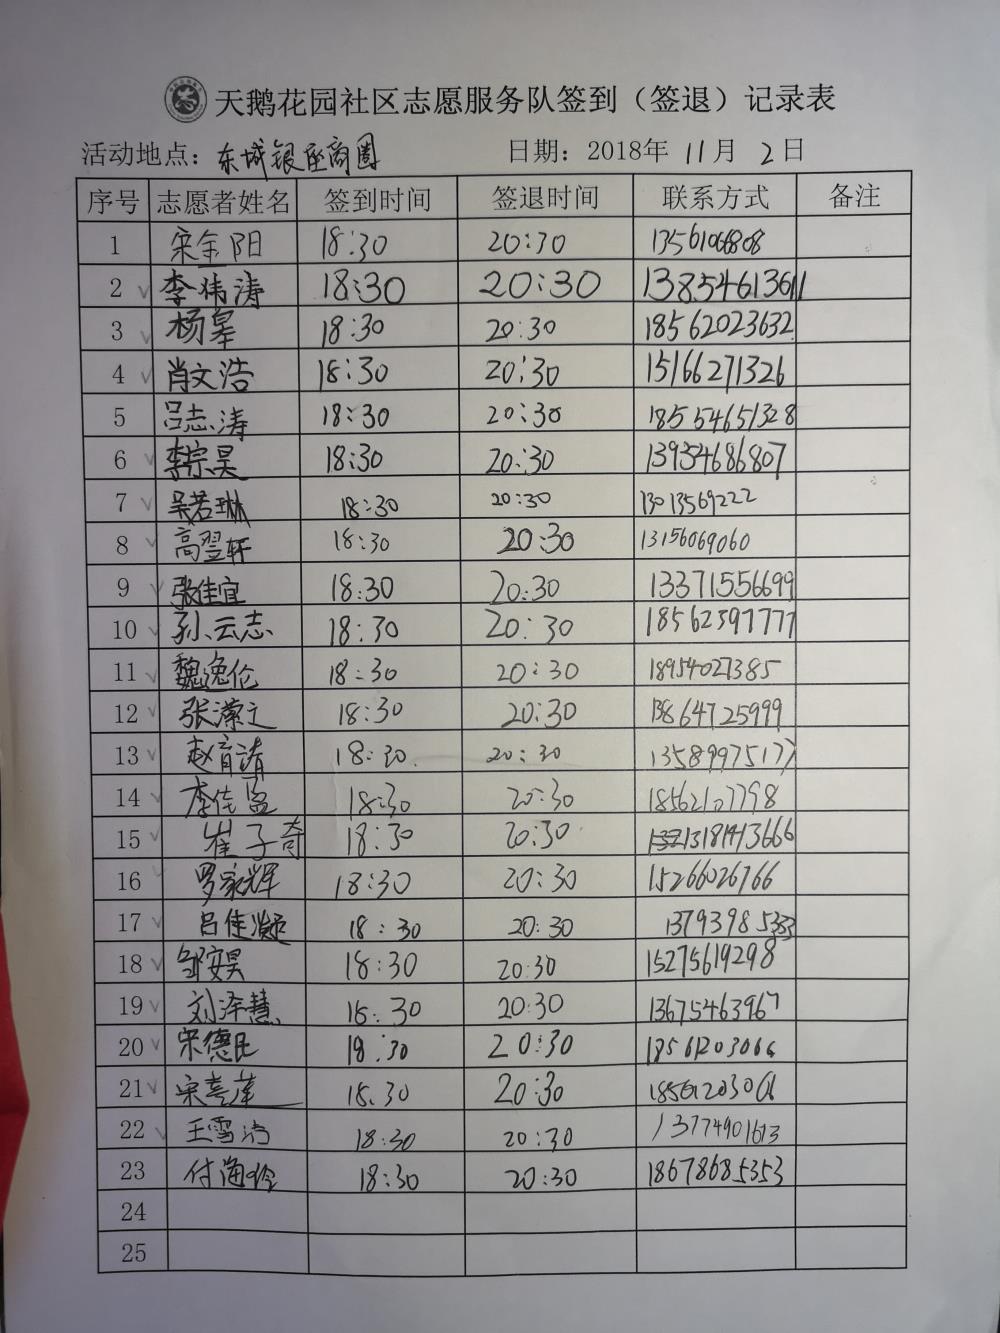 天鹅花园社区志愿服务队签到（签退）记录表
活动地点：东城银座商圈 日期：2018年 11月 2日
序号 志愿者姓名 签到时间 签退时间 联系方式 备注
1 宋金阳 18:30 20:30 1356106808
2 √ 李伟涛 18:30 20:30 13854613611
3 √ 杨皋 18:30 20:30 18562023632
4 √ 肖文浩 18:30 20:30 15166271326
5 吕志涛 18:30 20:30 18554651328
6 √ 李宗昊 18:30 20:30 13934686807
7 √ 吴若琳 18:30 20:30 13013569222
8 √ 高翌轩 18:30 20:30 13156069060
9 √ 张佳宜 18:30 20:30 13371556699
10 √ 孙云志 18:30 20:30 18562597777
11 √ 魏逸伦 18:30 20:30 18954027385
12 √ 张潆文 18:30 20:30 13864725999
13 √ 赵育靖 18:30 20:30 13589975177
14 √ 李佳孟 18:30 20:30 18562107798
15 √ 崔子奇 18:30 20:30
16 罗家辉 18:30 20:30 15266026766
17 √ 吕佳凝 18:30 20:30
18 √ 邹安昊 18:30 20:30 15275619298
19 √ 刘泽慧 18:30 20:30 13675463967
20 √ 宋德民 18:30 20:30 18561203066
21 √ 宋喜莲 18:30 20:30
22 √ 王雪 18:30 20:30 13774901613
23 付海玲 18:30 20:30 18678685353
24
25